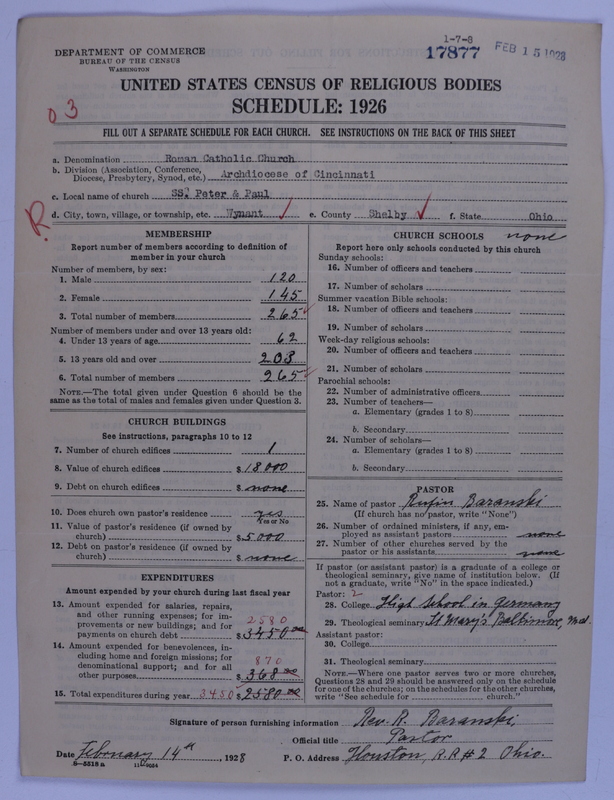 1-7-8
17877 FEB 15 1928
DEPARTMENT OF COMMERCE
BUREAU OF THE CENSUS
WASHINGTON
UNITED STATES CENSUS OF RELIGIOUS BODIES
SCHEDULE: 1926
03
FILL OUT A SEPARATE SCHEDULE FOR EACH CHURCH. SEE INSTRUCTIONS ON THE BACK OF THIS SHEET
a. Denomination Roman Catholic Church
b. Division (Association, Conference,
Diocese, Presbytery, Synod, etc.) Archdiocese of Cincinnati
c. Local name of church SS. Peter & Paul
R
d. City, town, village, or township, etc. Wynant e. County Shelby f. State Ohio
MEMBERSHIP
Report number of members according to definition of
member in your church
Number of members, by sex:
1. Male 120
2. Female 145
3. Total number of members 265
Number of members under and over 13 years old:
4. Under 13 years of age 62
5. 13 years old and over 203
6. Total number of members 265
NOTE.—The total given under Question 6 should be
same as the total of males and females given under Question 3.
CHURCH BUILDINGS
See instructions, paragraphs 10 to 12
7. Number of church edifices 1
8. Value of church edifices $18,000
9. Debt on church edifices $ none
10. Does church own pastor's residence yes
Yes or No
11. Value of pastor's residence (if owned by
church) $5000
12. Debt on pastor's residence (if owned by
church) $ none
EXPENDITURES
Amount expended by your church during last fiscal year
13. Amount expended for salaries, repairs,
and other running expenses; for im-
provements or new buildings; and for 2580
payments on church debt $3450.00
14. Amount expended for benevolences, in-
cluding home and foreign missions; for
denominational support; and for all 870
other purposes $368.00
15. Total expenditures during year 3450 $2580.00
CHURCH SCHOOLS none
Report here only schools conducted by this church
Sunday schools:
16. Number of officers and teachers
17. Number of scholars
Summer vacation Bible schools:
18. Number of officers and teachers
19. Number of scholars
Week-day religious schools:
20. Number of officers and teachers
21. Number of scholars
Parochial schools:
22. Number of administrative officers
23. Number of teachers—
a. Elementary (grades 1 to 8)
b. Secondary
24. Number of scholars—
a. Elementary (grades 1 to 8)
b. Secondary
PASTOR
25. Name of pastor Rufin Baranski
(If church has no pastor, write "None")
26. Number of ordained ministers, if any, em-
ployed as assistant pastors none
27. Number of other churches served by the
pastor or his assistants none
If pastor (or assistant pastor) is a graduate of a college or
theological seminary, give name of institution below. (If
not a graduate, write "No" in the space indicated.)
Pastor: 2
28. College High School in Germany
29. Theological seminary St Mary's Baltimore, Md.
Assistant pastor:
30. College
31. Theological seminary
NOTE.—Where one pastor serves two or more churches,
Questions 28 and 29 should be answered only on the schedule
for one of the churches; on the schedules for the other churches,
write "See schedule for church."
Signature of person furnishing information Rev. R. Baranski,
Official title Pastor
Date February 14th, 1928 P. O. Address Houston, R.R#2 Ohio.
8—5518 a